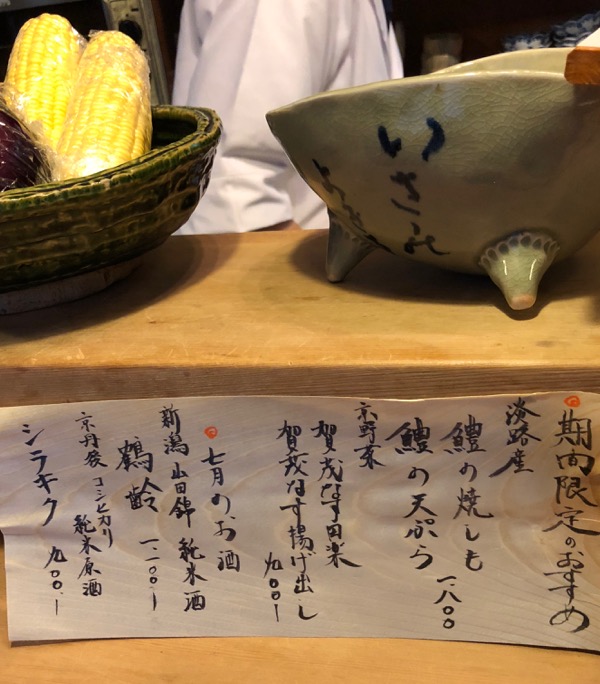 いさみ
期間限定のおすすめ
淡路産
鱧の焼しも
鱧の天ぷら 一八〇〇
京野菜
賀茂なす田楽
賀茂なす揚げ出し 九〇〇ー
七月のお酒
新潟 山田錦 純米酒
鶴齢 一、一〇〇ー
京丹後 コシヒカリ 純米原酒
シラキク 九〇〇ー